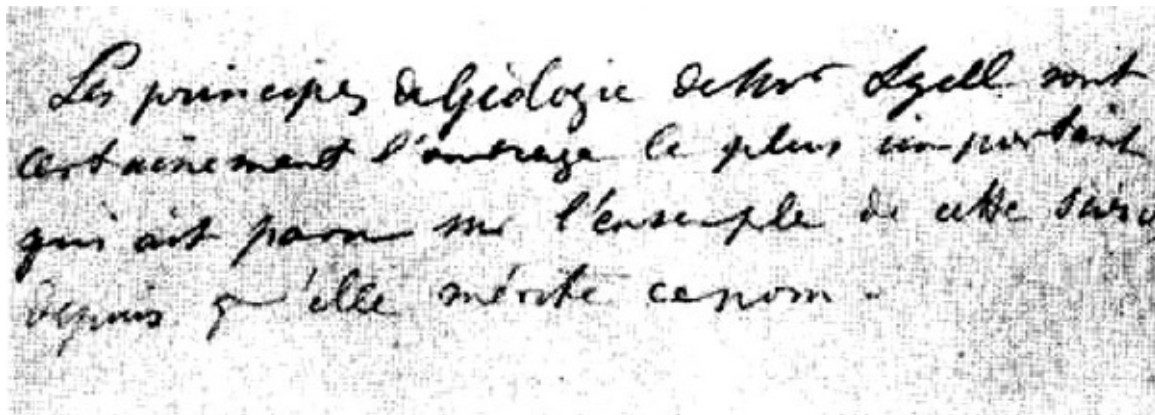 Les principes de Géologie de Mr Lyell sont
certainement l'ouvrage le plus important
qui ait paru sur l'ensemble de cette
depuis qu'elle mérite ce nom.